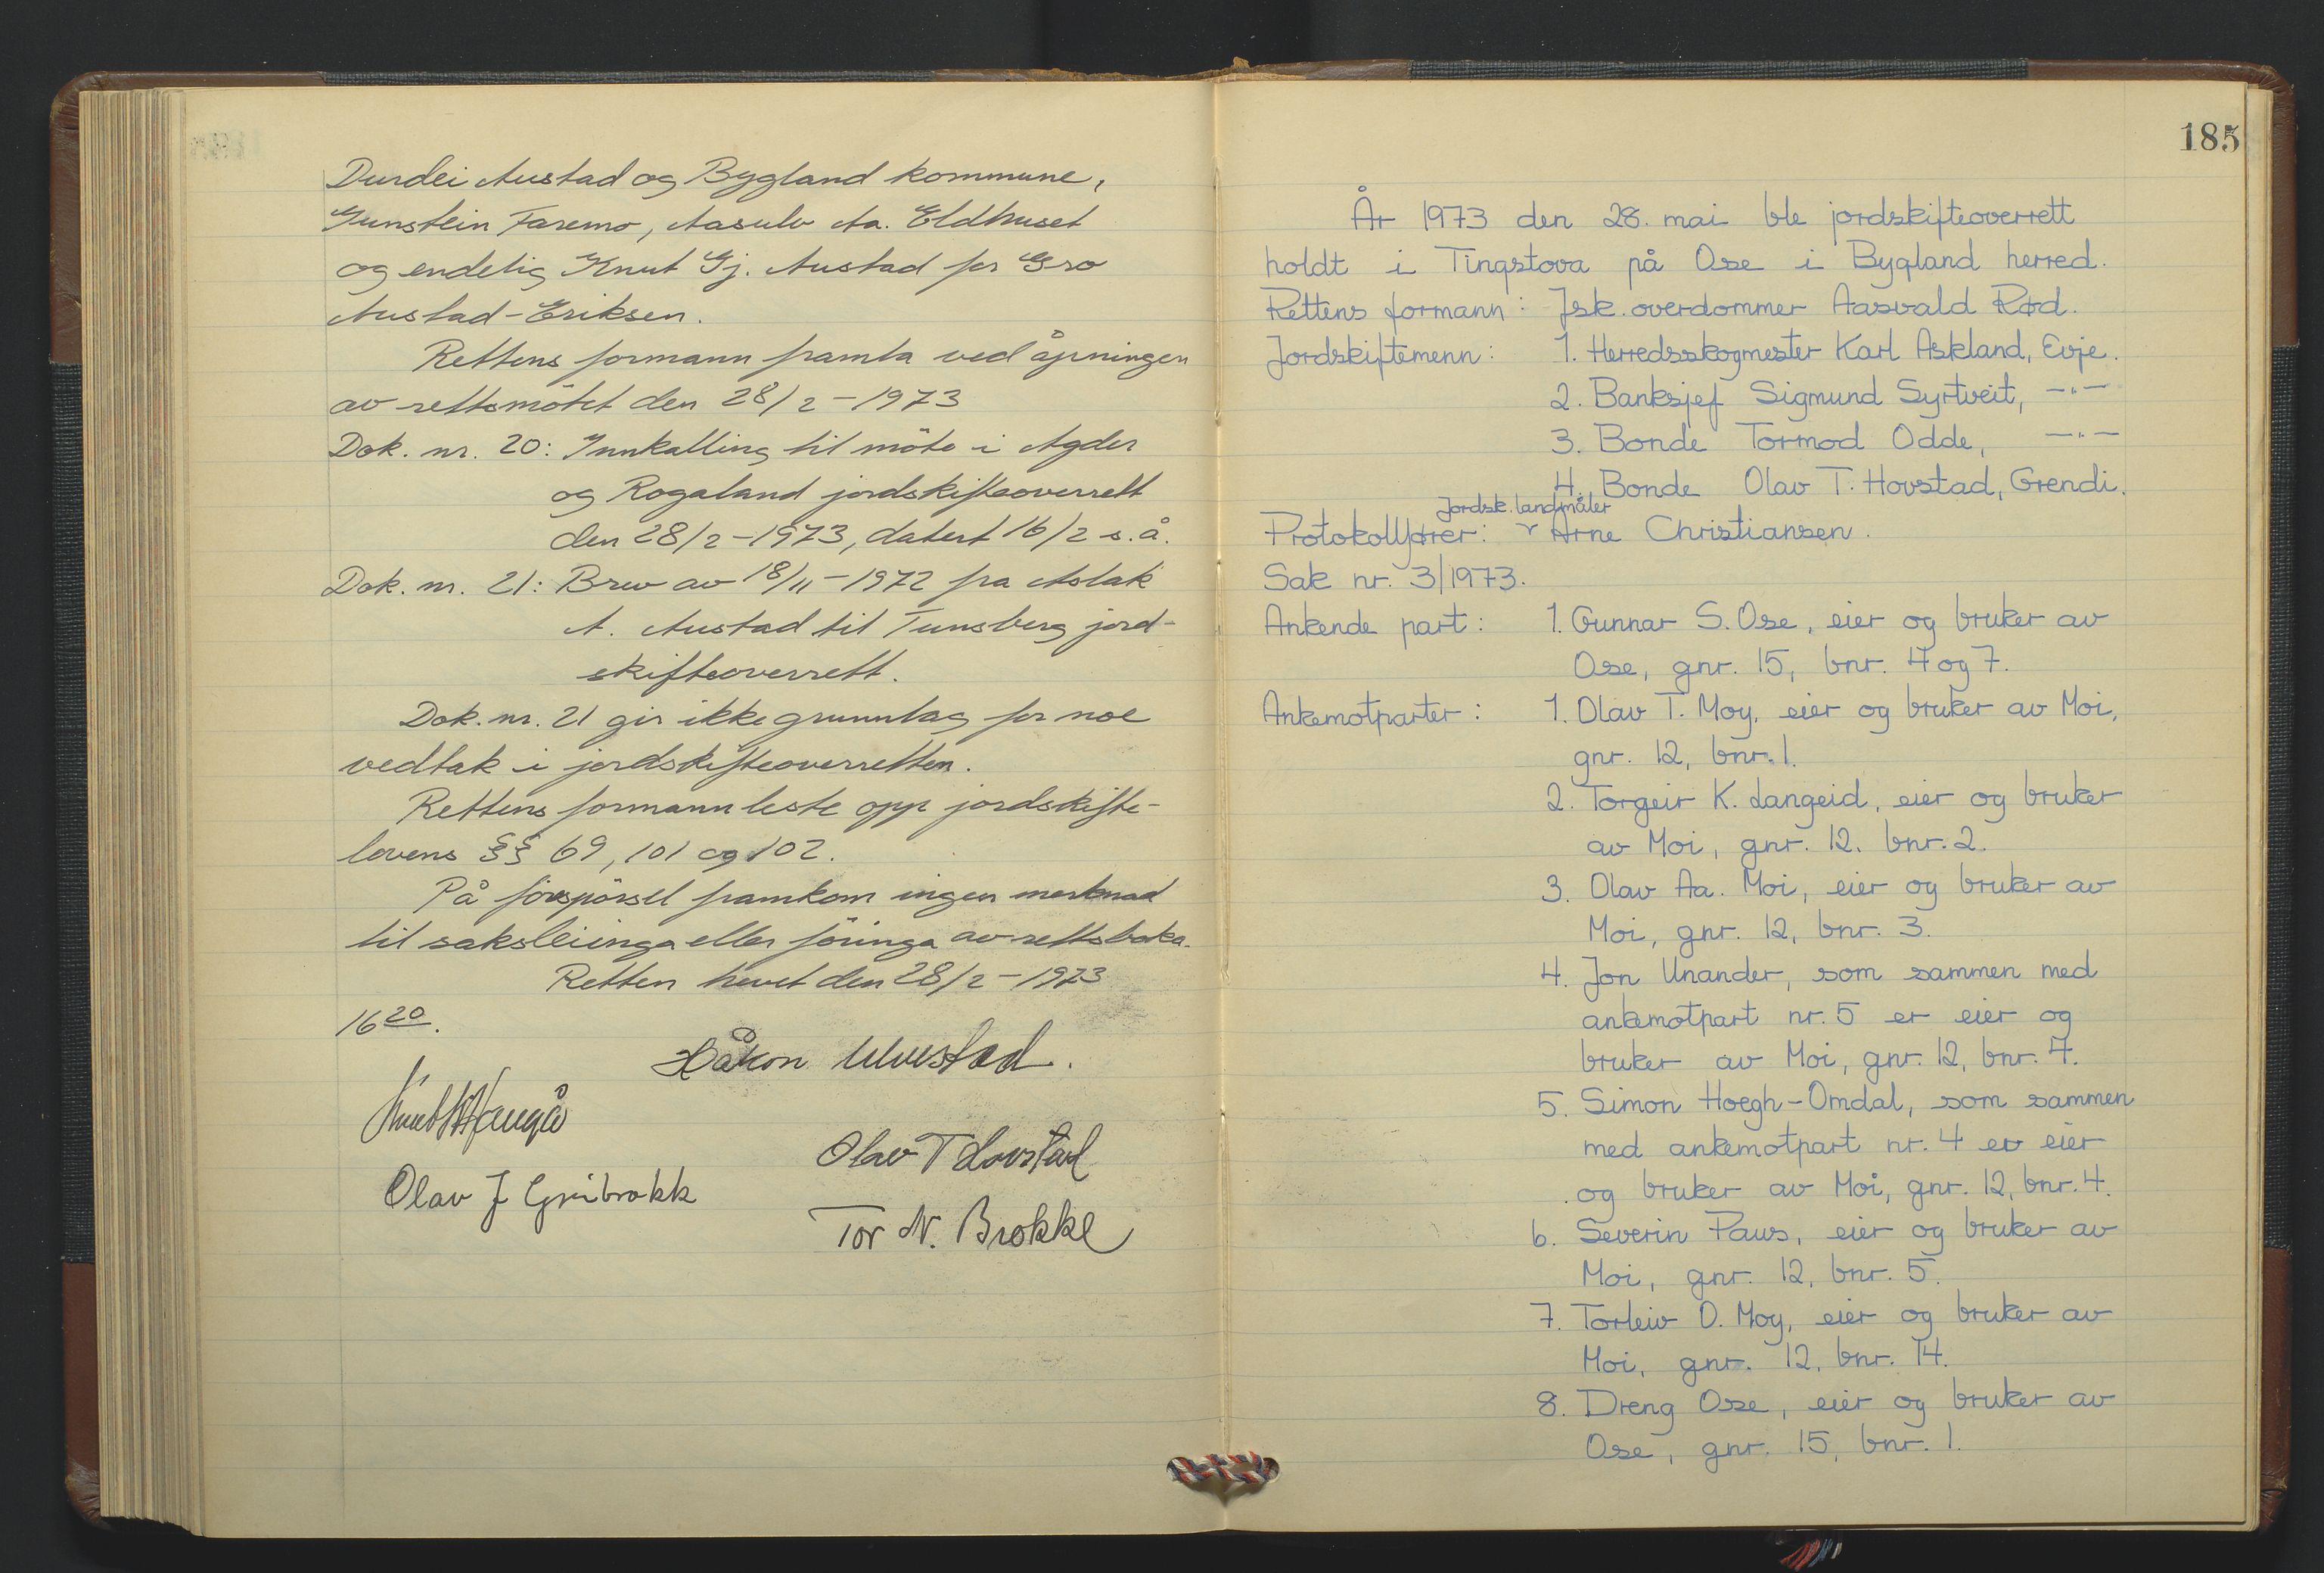 Durdei Austad og Bygland kommune,
Gunstein Faremo, Aasulv Aa. Eldhuset
og endelig Knut Gj. Austad for Gro
Austad-Eriksen.
Rettens formann framla ved åpningen
av rettsmötet den 28/2-1973
Dok. nr. 20: Innkalling til möte i Agder
og Rogaland jordskifteoverrett
den 28/2-1973, datert 16/2 s.å.
Dok. nr. 21: Brev av 18/11-1972 fra Aslak
A. Austad til Tunsberg jord-
skifteoverrett.
Dok. nr. 21 gir ikke grunnlag for noe
vedtak i jordskifteoverretten.
Rettens formann leste opp jordskifte-
lovens §§ 69, 101 og 102.
På förespörsel framkom ingen merknad
til saksleiinga eller föringa av rettsboka.
Retten hevet den 28/2-1973
16 20.
Håkon Ulvestad.
Olav T Hovstad
Olav J Greibrokk
Tor N. Brokke
185
År 1973 den 28. mai ble jordskifteoverrett
holdt i Tingstova på Ose i Bygland herred.
Rettens formann: Jsk. overdommer Aasvald Rød.
Jordskiftemenn: 1. Herredsskogmester Karl Askland, Evje.
2. Banksjef Sigmund Syrtveit, -"-
3. Bonde Tormod Odde, -"-
4. Bonde Olav T. Hovstad, Grendi.
Jordsk. landmåler
Protokollfører: v Arne Christiansen.
Sak nr. 3/1973.
Ankende part: 1. Gunnar S. Ose, eier og bruker av
Ose, gnr. 15, bnr. 4 og 7.
Ankemotparter: 1. Olav T. Moy, eier og bruker av Moi,
gnr. 12, bnr. 1.
2. Torgeir K. Langeid, eier og bruker
av Moi, gnr. 12. bnr. 2.
3. Olav Aa. Moi, eier og bruker av
Moi, gnr. 12, bnr. 3.
4. Jon Unander, som sammen med
ankemotpart nr. 5 er eier og
bruker av Moi, gnr. 12, bnr. 4.
5. Simon Hoegh-Omdal, som sammen
med ankemotpart nr. 4 er eier
og bruker av Moi, gnr. 12, bnr. 4.
6. Severin Paus, eier og bruker av
Moi, gnr. 12, bnr. 5.
7. Torleiv O. Moy, eier og bruker av
Moi, gnr. 12, bnr. 14.
8. Dreng Ose, eier og bruker av
Ose, gnr. 15, bnr. 1.